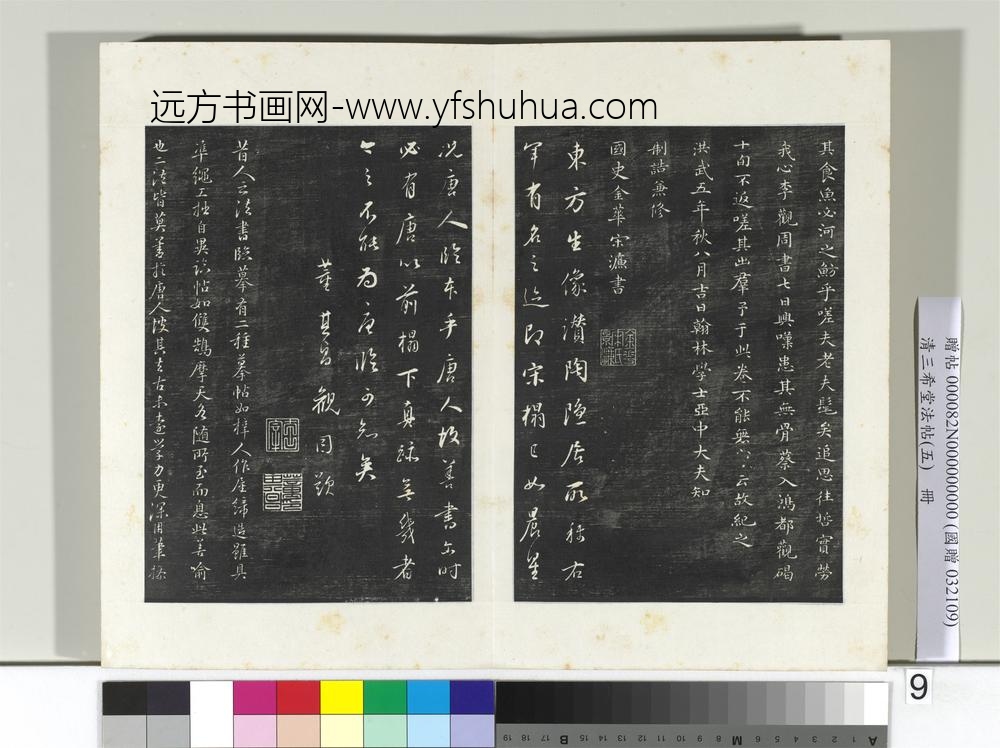 远方书画网-www.yfshuhua.com
其食魚必河之魴乎嗟夫老夫髦矣追思往哲實勞
我心李觀周書七日興嘆患其無骨蔡入鴻都觀碣
十旬不返嗟其出羣予于此卷不能無六云故紀之
洪武五年秋八月吉日翰林學士亞中大夫知
制誥兼修
國史金華宋濂書
東方生像讚陶隱居所稱右
軍有名之迹即宋榻已如晨星
況唐人臨本乎唐人故善書尔時
必有唐以前榻下真跡無幾者
今之不能為唐臨可知矣
董其昌觀因題
昔人云法書臨摹有二種摹帖如梓人作屋締造雖具
準繩工拙自異臨帖如雙鵠摩天各隨所至而息此善喻
也二法皆莫善於唐人後其去古未遠學力更深因華採
贈帖 000082N000000000 (國贈 032109)
清三希堂法帖(五) 冊
9
19 18 17 16 15 B 14 13 12 11 10 9 8 7 M 6 5 4 3 2 1 A